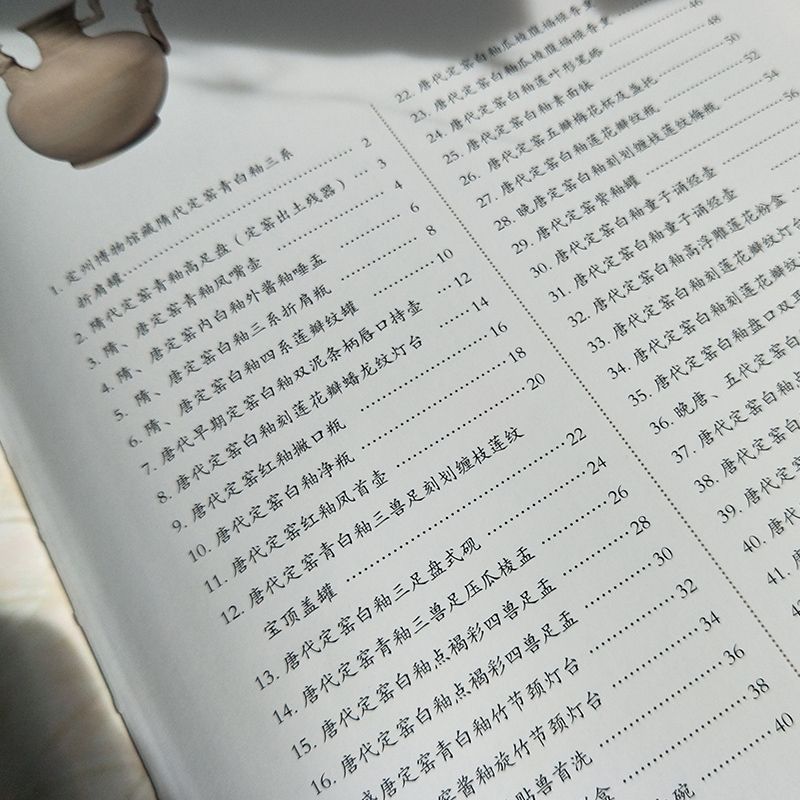 1. 定州博物馆藏隋代定窑青白釉三系
折肩罐 2
2. 隋代定窑青釉高足盘（定窑出土残器） 3
3. 隋、唐定窑青釉凤嘴壶 4
4. 隋、唐定窑内白釉外酱釉唾盂 6
5. 隋、唐定窑白釉三系折肩瓶 8
6. 隋、唐定窑白釉四系莲瓣纹罐 10
7. 唐代早期定窑白釉双泥条柄唇口持壶 12
8. 唐代定窑白釉刻莲花瓣蟠龙纹灯台 14
9. 唐代定窑红釉撇口瓶 16
10. 唐代定窑白釉净瓶 18
11. 唐代定窑红釉凤首壶 20
12. 唐代定窑青白釉三兽足刻划缠枝莲纹
宝顶盖罐 22
13. 唐代定窑白釉三足盘式砚 24
14. 唐代定窑青釉三兽足压瓜棱盂 26
15. 唐代定窑白釉点褐彩四兽足盂 28
16. 唐代定窑白釉点褐彩四兽足盂 30
唐定窑青白釉竹节颈灯台 32
窑酱釉旋竹节颈灯台 34
贴兽首洗 36
盒 38
碗 40
46
22. 唐代定窑白釉瓜棱 48
23. 唐代定窑白釉莲叶形笔舔 50
24. 唐代定窑白釉素面钵 52
25. 唐代定窑五瓣梅花杯及盏托 54
26. 唐代定窑白釉莲花瓣纹瓶 56
27. 晚唐定窑白釉刻划缠枝莲纹梅瓶
28. 唐代定窑紫釉罐
29. 唐代定窑白釉童子诵经壶
30. 唐代定窑白釉童子诵经壶
31. 唐代定窑白釉高浮雕莲花粉盒
32. 唐代定窑白釉刻莲花瓣纹灯台
33. 唐代定窑白釉刻莲花瓣纹
34. 唐代定窑白釉盘口双
35. 晚唐、五代定窑白
36. 唐代定窑白釉点
37. 唐代定窑白
38. 唐代定窑
39. 唐代定
40. 唐代
41. 唐